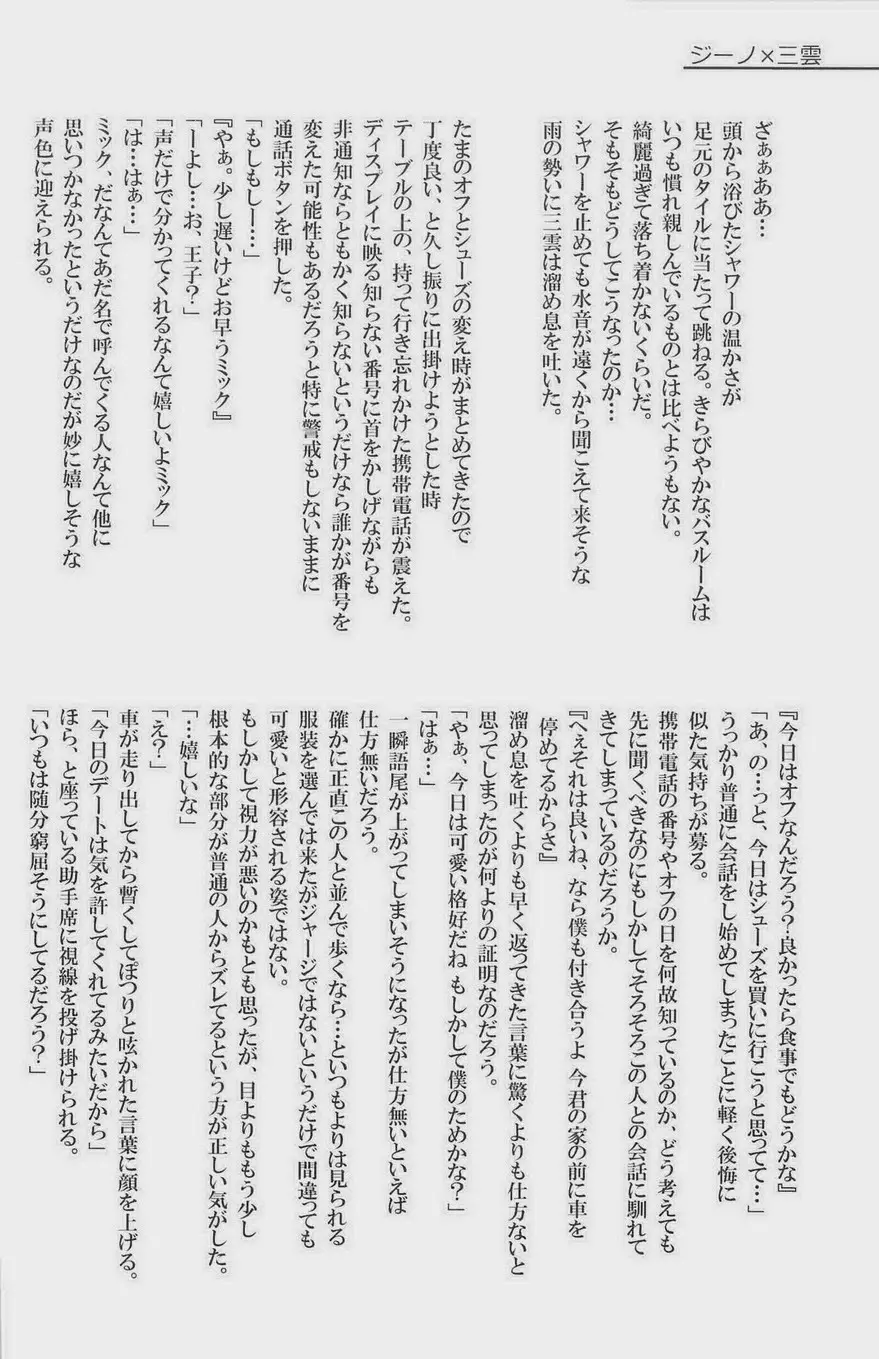 ジーノ×三雲
ざぁぁああ…
頭から浴びたシャワーの温かさが
足元のタイルに当たって跳ねる。きらびやかなバスルームは
いつも慣れ親しんでいるものとは比べようもない。
綺麗過ぎて落ち着かないくらいだ。
そもそもどうしてこうなったのか…
シャワーを止めても水音が遠くから聞こえて来そうな
雨の勢いに三雲は溜め息を吐いた。
たまのオフとシューズの変え時がまとめてきたので
丁度良い、と久し振りに出掛けようとした時
テーブルの上の、持って行き忘れかけた携帯電話が震えた。
ディスプレイに映る知らない番号に首をかしげながらも
非通知ならともかく知らないというだけなら誰かが番号を
変えた可能性もあるだろうと特に警戒もしないままに
通話ボタンを押した。
「もしもしー…」
『やぁ。少し遅いけどお早うミック』
「ーよし…お、王子？」
「声だけで分かってくれるなんて嬉しいよミック」
「は…はぁ…」
ミック、だなんてあだ名で呼んでくる人なんて他に
思いつかなかったというだけなのだが妙に嬉しそうな
声色に迎えられる。
『今日はオフなんだろう？良かったら食事でもどうかな』
「あ、の…っと、今日はシューズを買いに行こうと思ってて…」
うっかり普通に会話をし始めてしまったことに軽く後悔に
似た気持ちが募る。
携帯電話の番号やオフの日を何故知っているのか、どう考えても
先に聞くべきなのにもしかしてそろそろこの人との会話に馴れて
きてしまっているのだろうか。
『へぇそれは良いね、なら僕も付き合うよ 今君の家の前に車を
停めてるからさ』
溜め息を吐くよりも早く返ってきた言葉に驚くよりも仕方ないと
思ってしまったのが何よりの証明なのだろう。
「やぁ、今日は可愛い格好だね もしかして僕のためかな？」
「はぁ…」
一瞬語尾が上がってしまいそうになったが仕方無いといえば
仕方無いだろう。
確かに正直この人と並んで歩くなら…といつもよりは見られる
服装を選んでは来たがジャージではないというだけで間違っても
可愛いと形容される姿ではない。
もしかして視力が悪いのかもとも思ったが、目よりももう少し
根本的な部分が普通の人からズレてるという方が正しい気がした。
「…嬉しいな」
「え？」
車が走り出してから暫くしてぽつりと呟かれた言葉に顔を上げる。
「今日のデートは気を許してくれてるみたいだから」
ほら、と座っている助手席に視線を投げ掛けられる。
「いつもは随分窮屈そうにしてるだろう？」